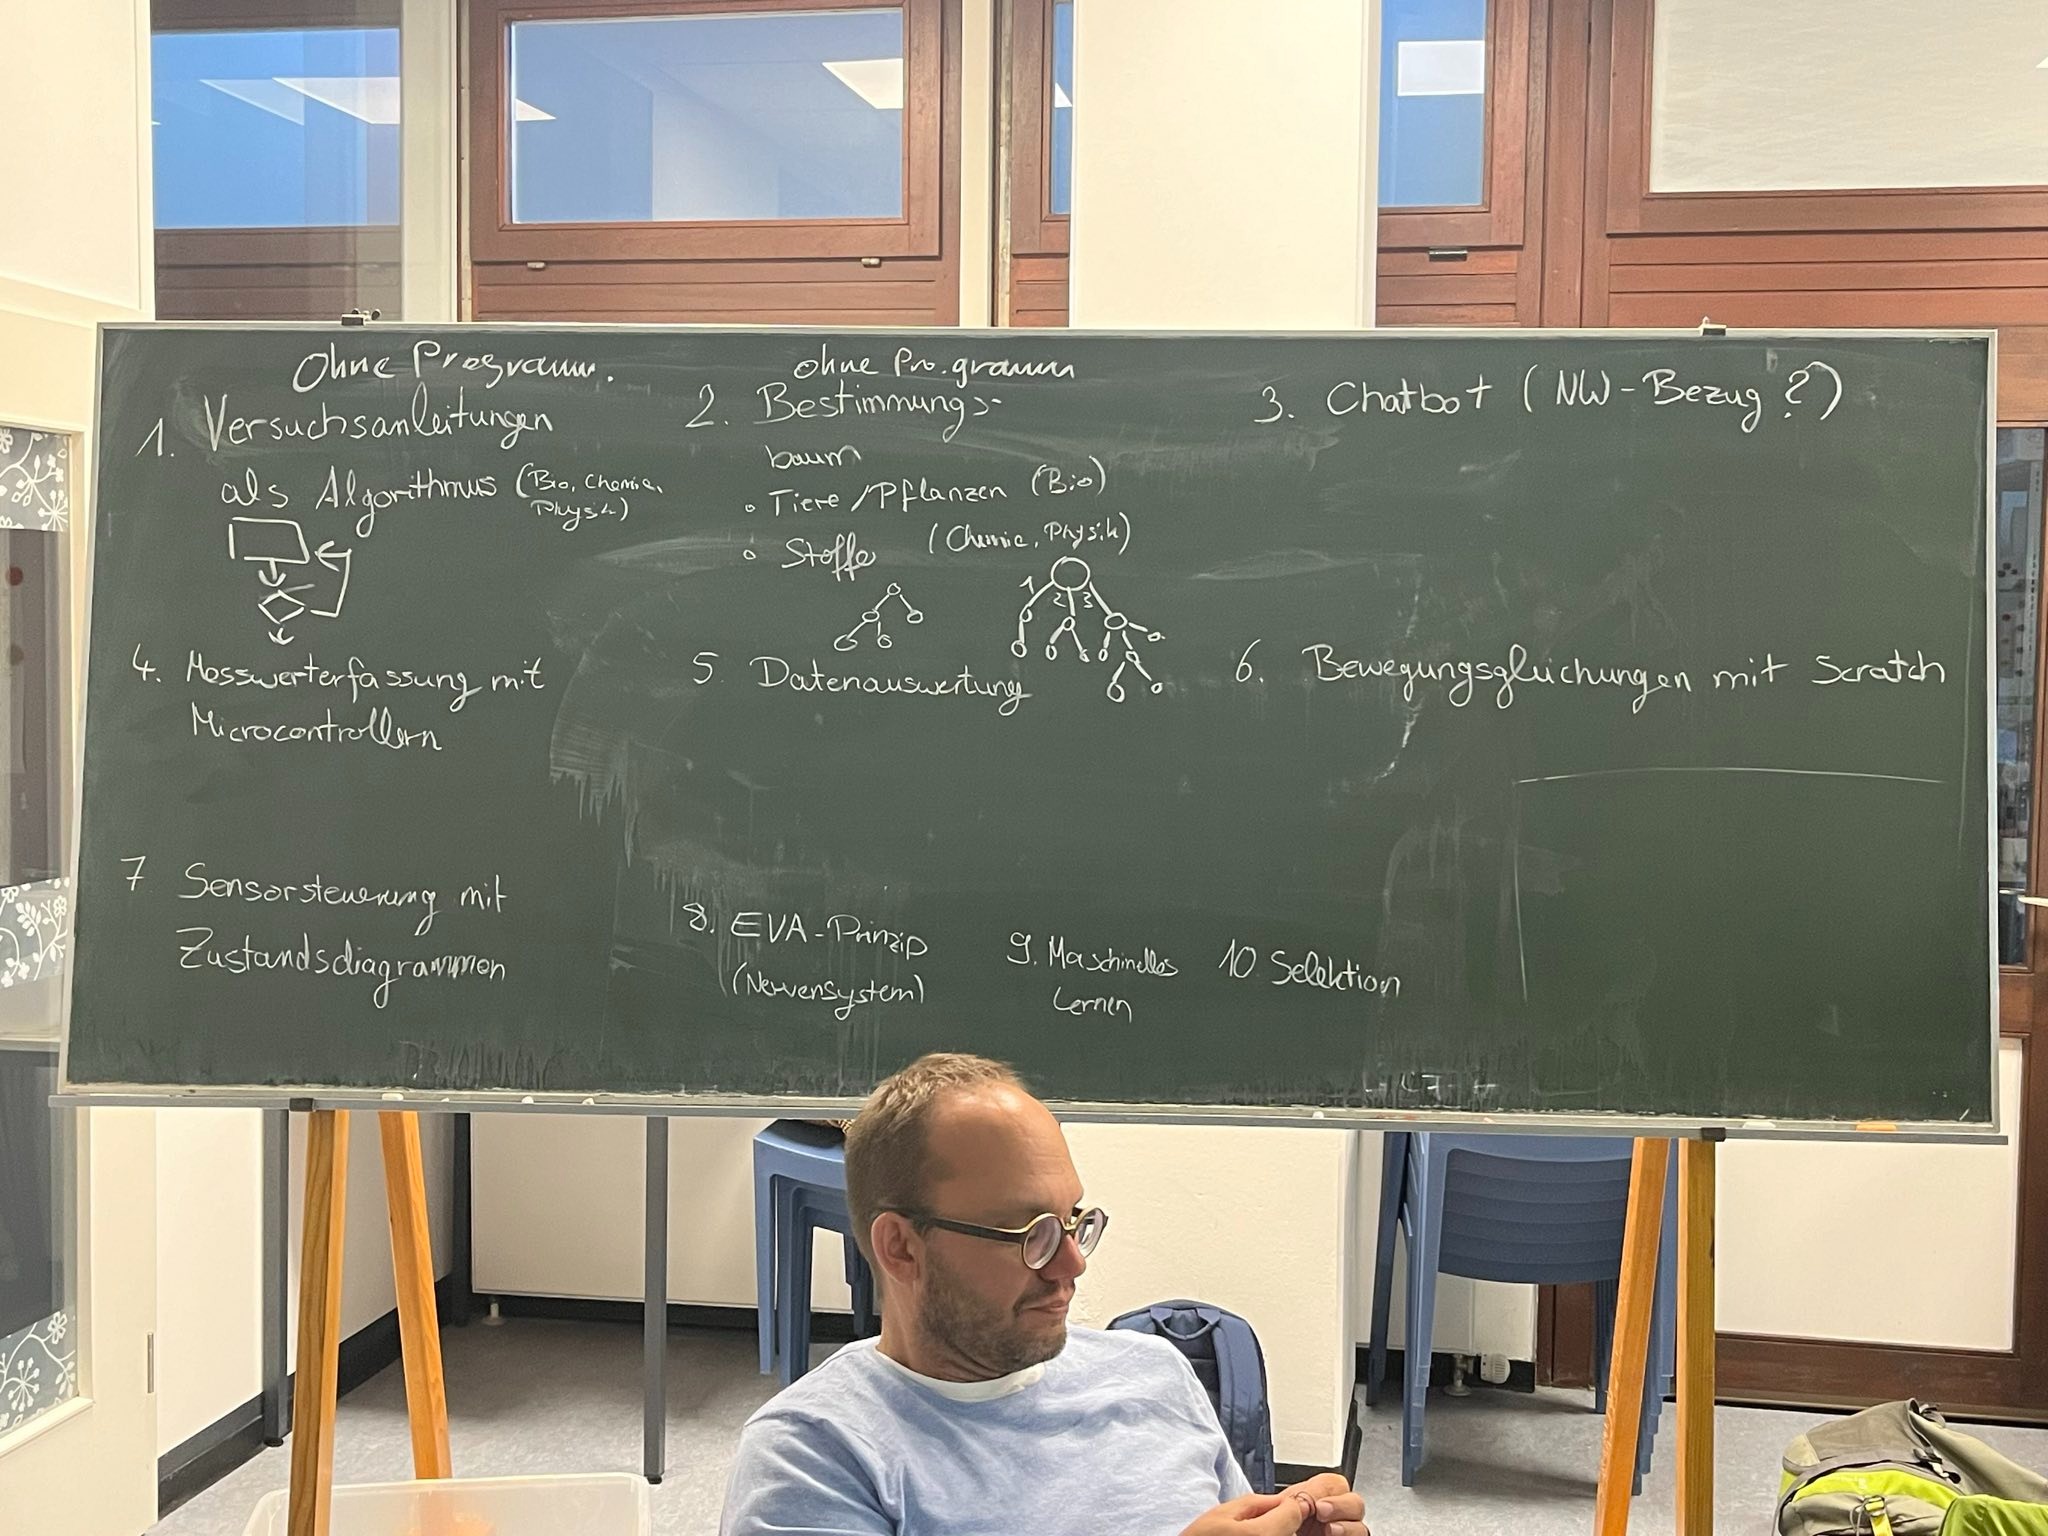 Ohne Programm.
1. Versuchsanleitungen
als Algorithmus (Bio, Chemie,
Physik)
ohne Programm
2. Bestimmungs-
baum
◦ Tiere/Pflanzen (Bio)
◦ Stoffe (Chemie, Physik)
1 2 3
3. Chatbot (NW-Bezug?)
4. Messwerterfassung mit
Microcontrollern
5. Datenauswertung
6. Bewegungsgleichungen mit Scratch
7 Sensorsteuerung mit
Zustandsdiagrammen
8. EVA-Prinzip
(Nervensystem)
9. Maschinelles
Lernen
10 Selektion